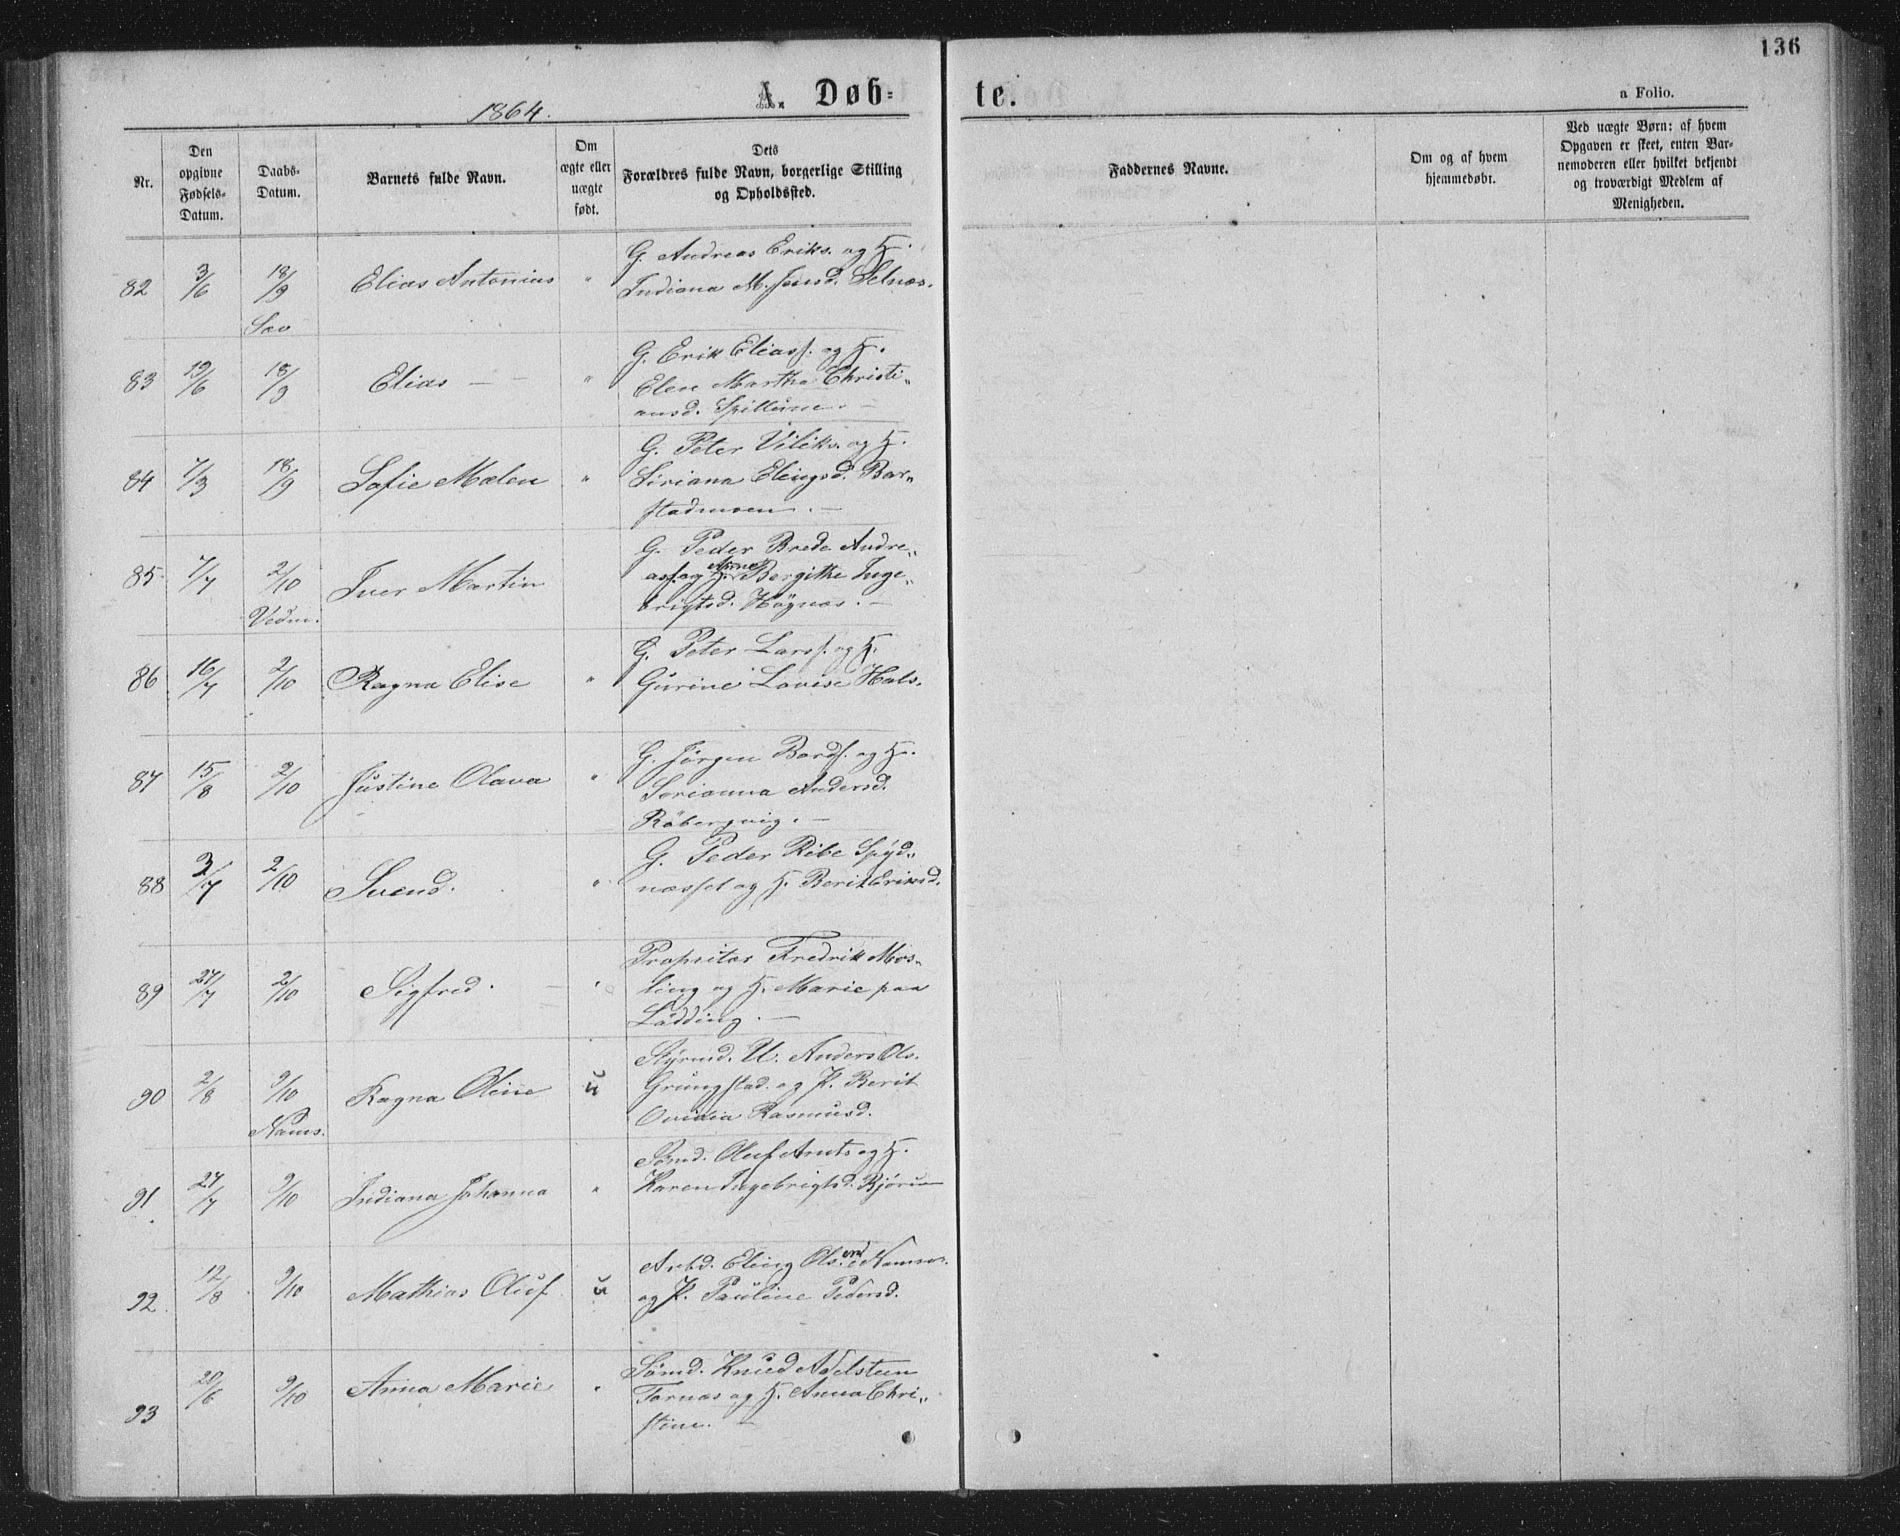 136
A. Døb=
te.
a Folio.
1864.
Nr.
Den
opgivne
Fødsels-
Datum.
Daabs-
Datum.
Barnets fulde Navn.
Om
ægte eller
uægte
født.
Dets
Forældres fulde Navn, borgerlige Stilling
og Opholdssted.
Faddernes Navne.
Om og af hvem
hjemmedøbt.
Ved uægte Børn: af hvem
Opgaven er skeet, enten Bar-
nemoderen eller hvilket bekjendt
og troværdigt Medlem af
Menigheden.
82 3/6 18/9 Elias Antonius " G. Andreas Eriks. og H.
Indiana M. Jensd. Selnæs.
Sæv
83 19/6 18/9 Elias — — " G. Erik Eliass. og H.
Elen Martha Christi„
ansd. Spillum. —
84 7/3 18/9 Sofie Malen " G. Peter Viliks. og H.
Siriana Elingsd. Bar„
stadmoen. —
85 7/7 2/10 Iver Martin G. Peder Brede Andre„
ass. og H. Bergithe Inge„
brigtsd. Högnæs. —
Vedm.
86 16/7 2/10 Ragna Elise " G. Peter Larss. og H.
Gurine Lovise Hals.
87 15/8 2/10 Justine Olava " G. Jørgen Bards. og H.
Serianna Andersd.
Råbergvig. —
88 3/7 2/10 Svend. " G. Peder Ribe Spyd„
næsset og H. Berit Eriksd.
89 24/7 2/10 Sigfred. — " Propritær Fredrik Mos„
ling og H. Marie paa
Lödding. —
90 2/8 9/10 Ragna Oline u Styrmd. U. Anders Ols.
Grungstad. og P. Berit
Ovidia Rasmusd.
Nams.
91 24/7 9/10 Indiana Johanna " Sømd. Oluf Arnts og H.
Karen Ingebrigtsd. Bjørum
92 12/8 9/10 Mathias Oluf u Arbd. Eling Ols. Namsos.
og P. Pauline Pedersd.
93 20/6 9/10 Anna Marie " Sømd. Knud Adelsteen
Tornæs og H. Anna Chri„
stine. —